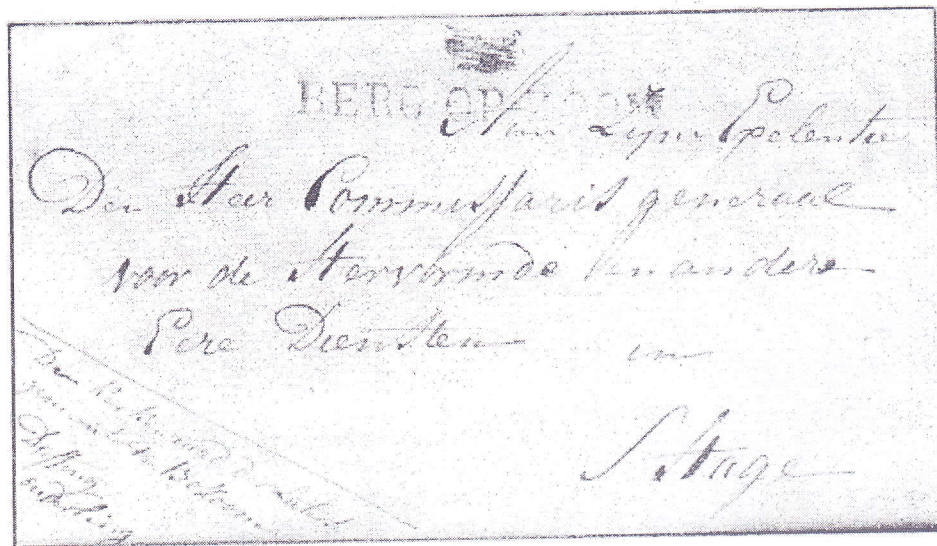 BERG OP ZOOM
Aan Zijn Exelentie
Den Heer Commissaris generaal
voor de Hervormde en andere
Eere Diensten in
S Hage
De Kerkenraad
gemeente